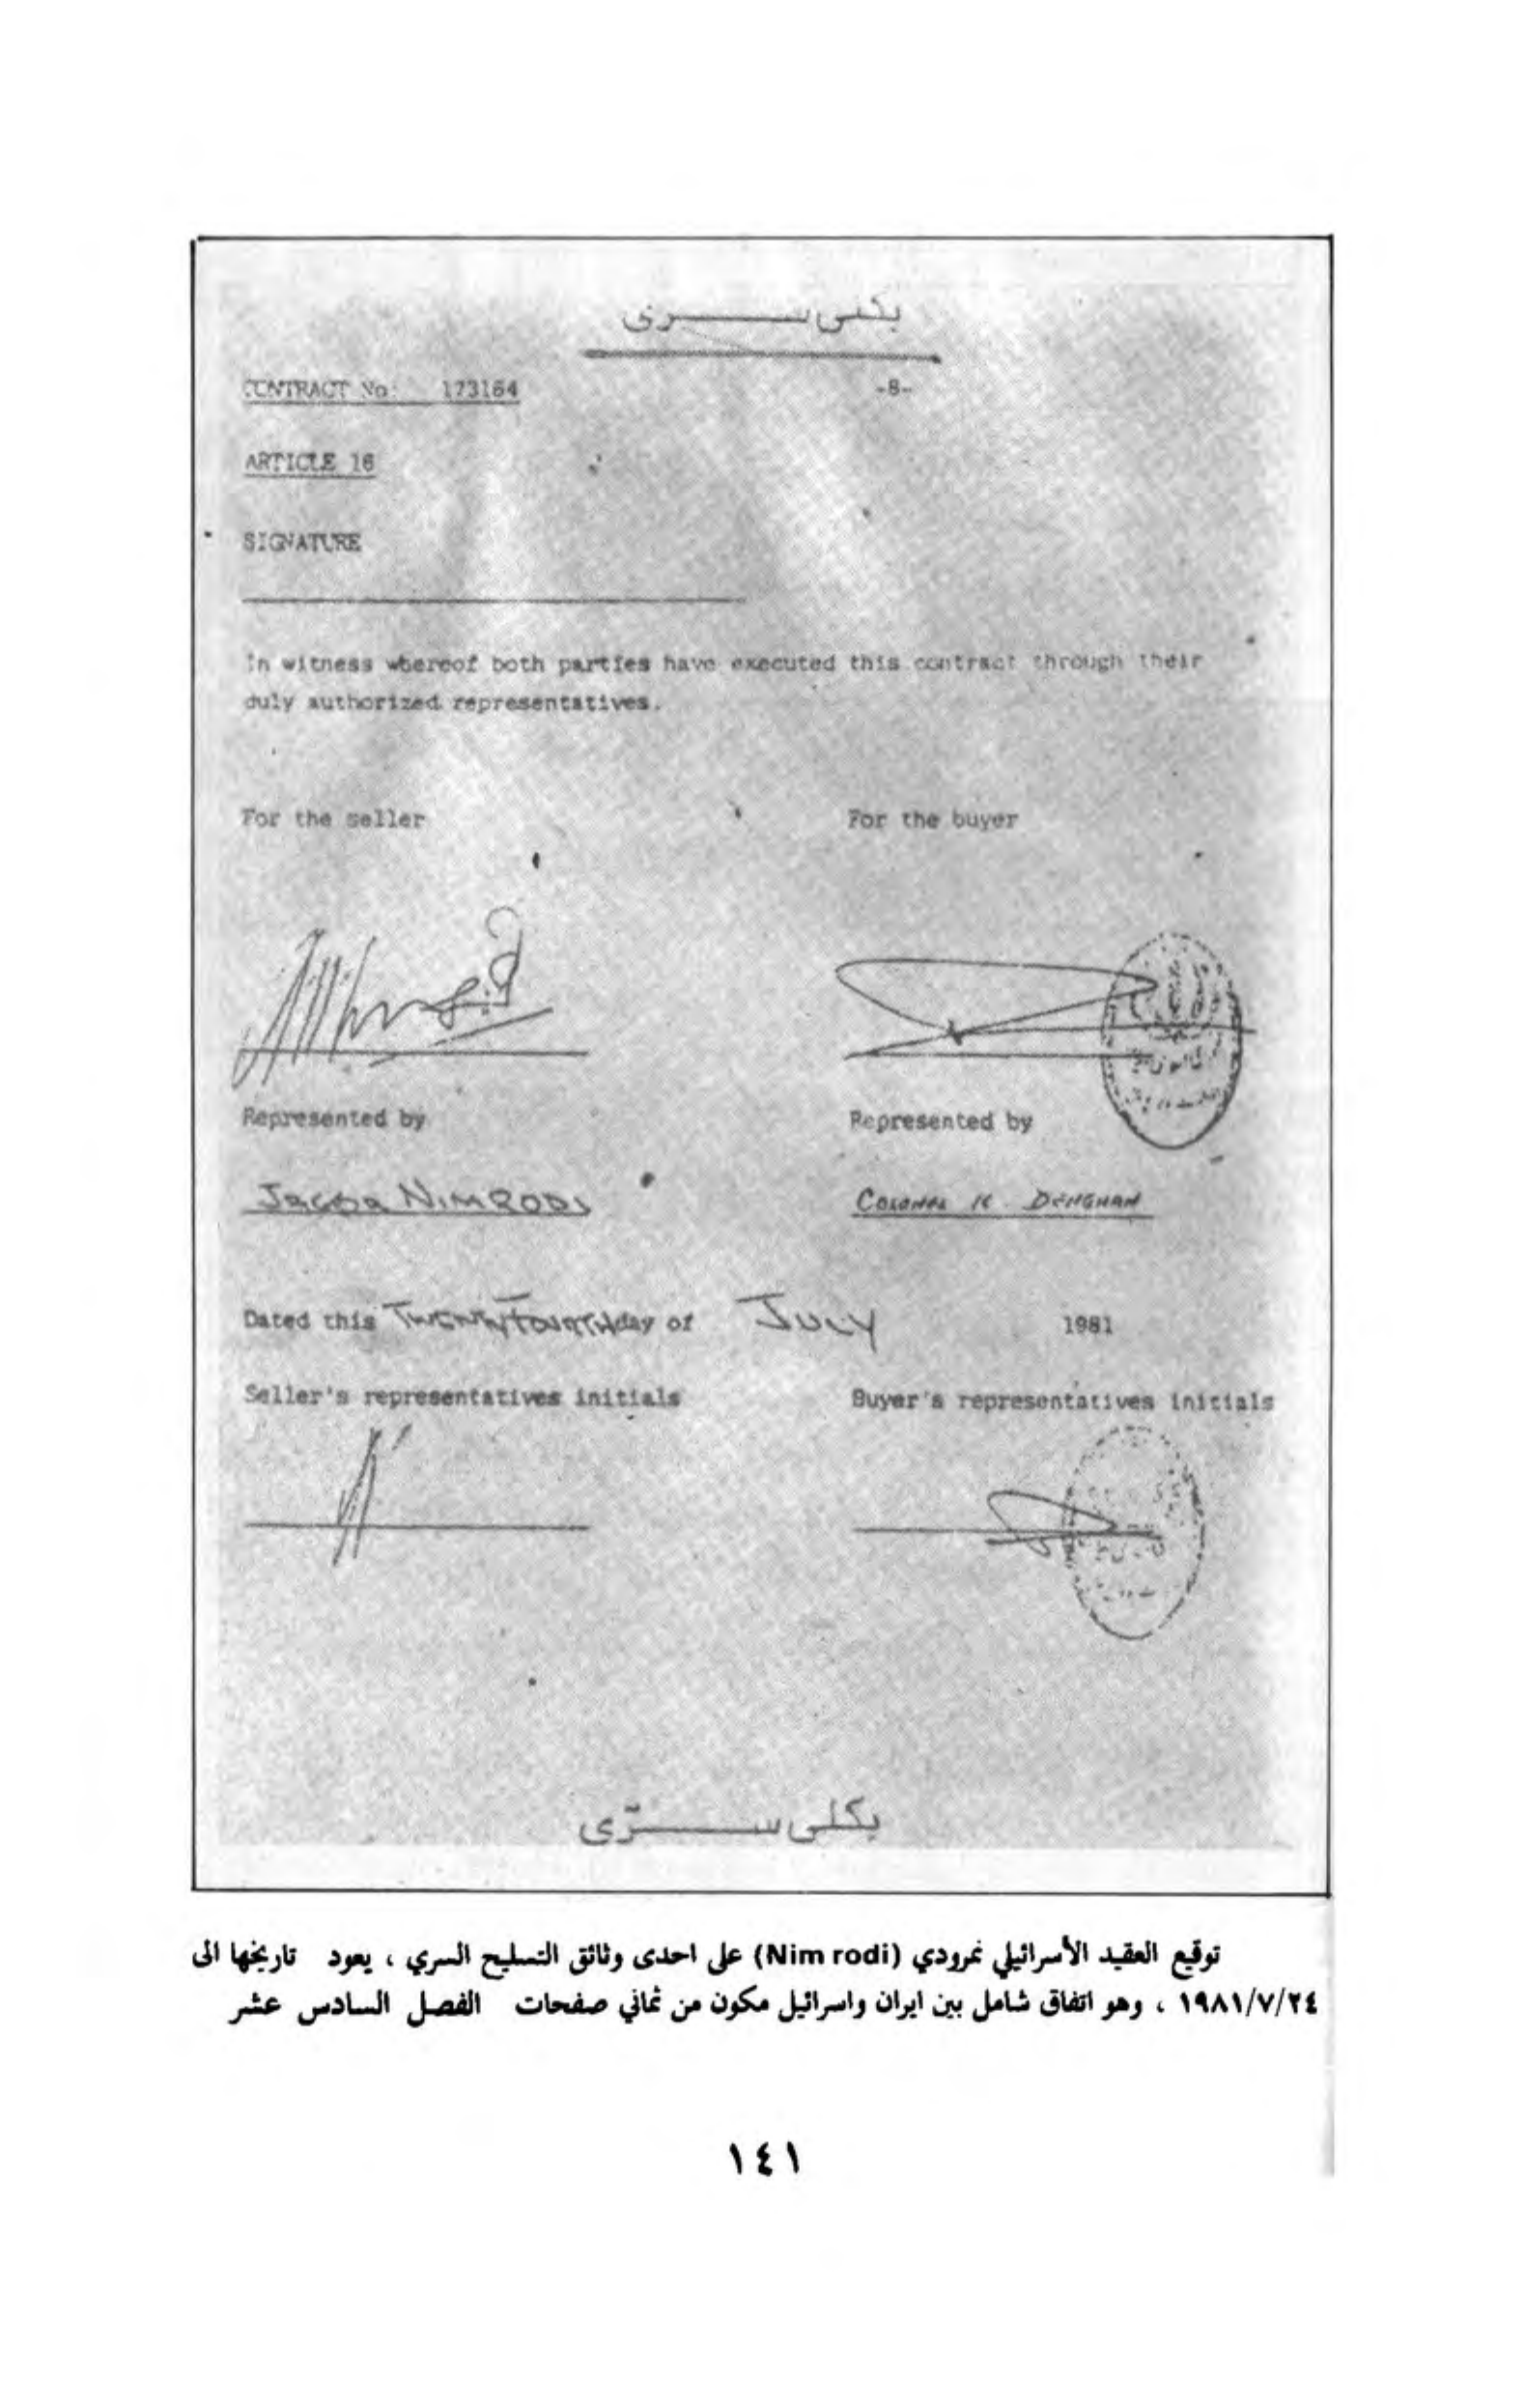 بکلی ســـــری
CONTRACT No: 173164 -8-
ARTICLE 16
SIGNATURE
In witness whereof both parties have executed this contract through their
duly authorized representatives.
For the seller For the buyer
Represented by Represented by
Jacob NIMRODI COLONEL K. DEHGHAN
Dated this TWENTY FOURTH day of JULY 1981
Seller's representatives initials Buyer's representatives initials
بکلی ســـــرّی
توقيع العقيد الأسرائيلي نمرودي (Nim rodi) على احدى وثائق التسليح السري ، يعود تاريخها الى
١٩٨١/٧/٢٤ ، وهو اتفاق شامل بين ايران واسرائيل مكون من ثماني صفحات الفصل السادس عشر
١٤١